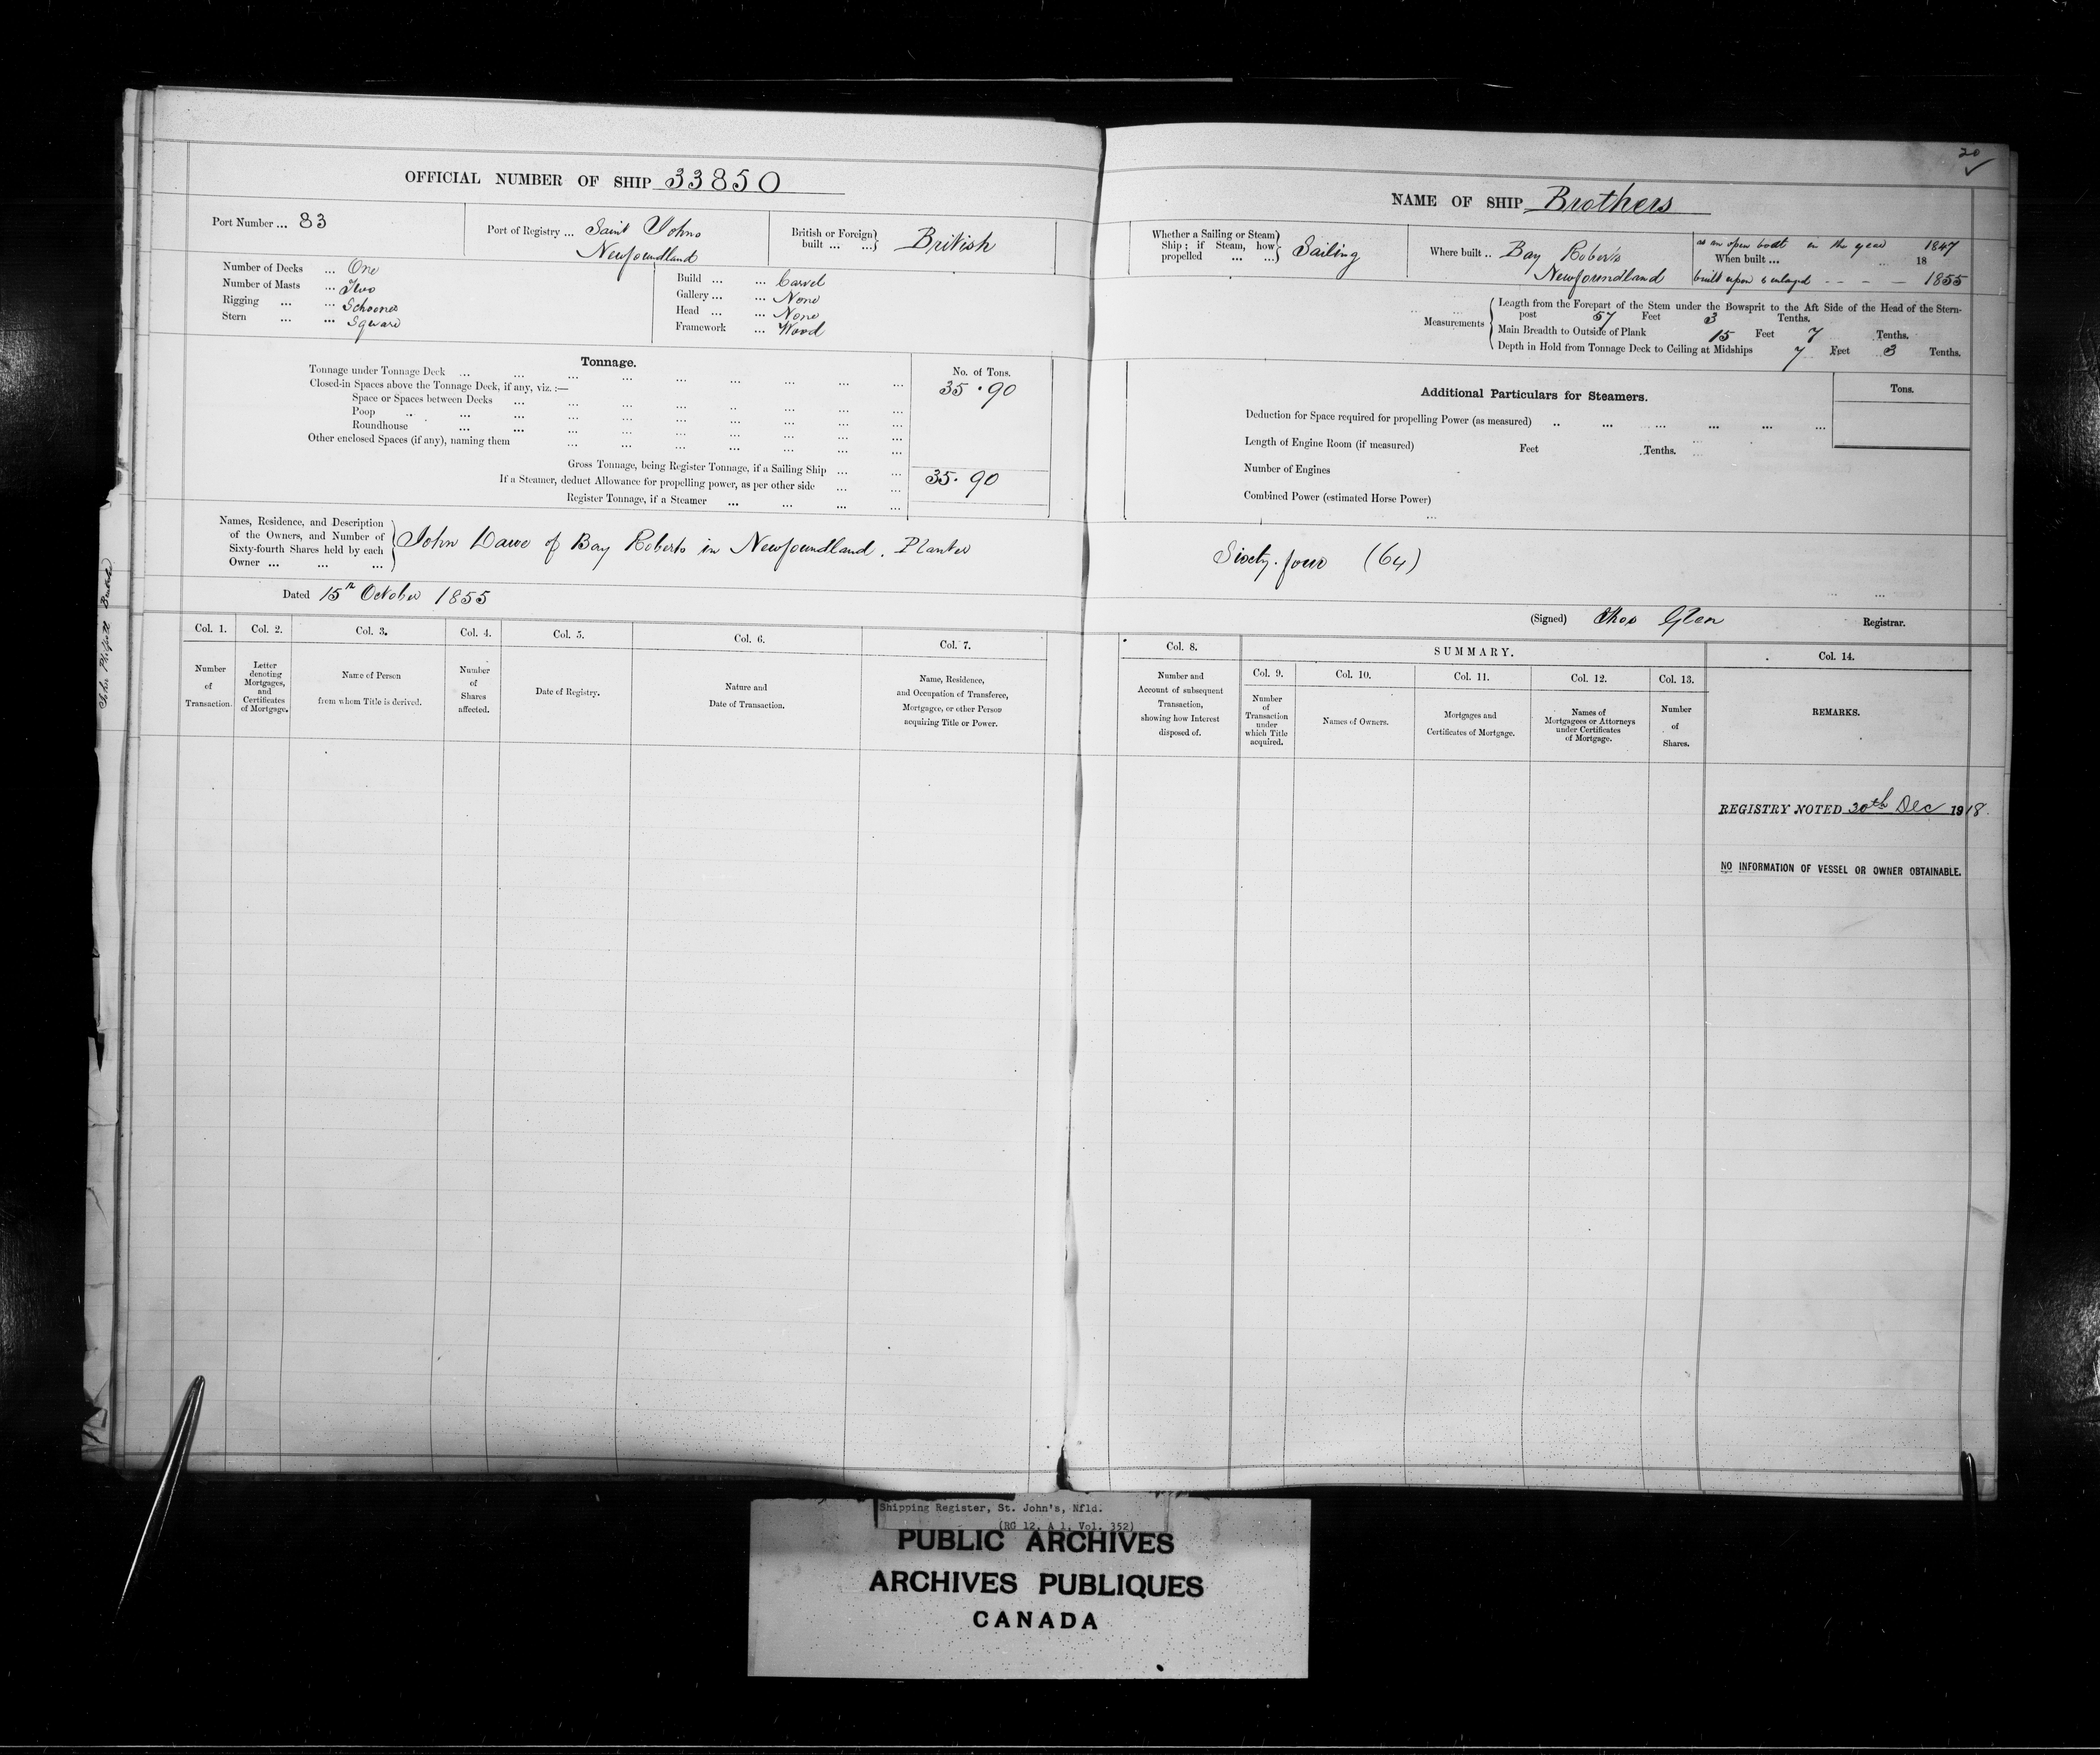 20
OFFICIAL NUMBER OF SHIP 33850
Port Number ... 83
Port of Registry ... Saint Johns
Newfoundland
British or Foreign built ... ... British
Number of Decks ... One
Number of Masts ... Two
Rigging ... ... Schooner
Stern ... ... Square
Build ... ... Carvel
Gallery ... ... None
Head ... ... None
Framework ... Wood
Tonnage.
No. of Tons.
Tonnage under Tonnage Deck ... 35.90
Closed-in Spaces above the Tonnage Deck, if any, viz. :—
Space or Spaces between Decks ...
Poop ...
Roundhouse ...
Other enclosed Spaces (if any), naming them
Gross Tonnage, being Register Tonnage, if a Sailing Ship ... 35.90
If a Steamer, deduct Allowance for propelling power, as per other side ...
Register Tonnage, if a Steamer ...
Names, Residence, and Description
of the Owners, and Number of
Sixty-fourth Shares held by each
Owner ... ... ...
John Dawe of Bay Roberts in Newfoundland. Planter
Dated 15th October 1855
Col. 1. Col. 2. Col. 3. Col. 4. Col. 5. Col. 6. Col. 7.
Number of Transaction.
Letter denoting Mortgages, and Certificates of Mortgage.
Name of Person from whom Title is derived.
Number of Shares affected.
Date of Registry.
Nature and Date of Transaction.
Name, Residence, and Occupation of Transferee, Mortgagee, or other Person acquiring Title or Power.
NAME OF SHIP Brothers
Whether a Sailing or Steam Ship; if Steam, how propelled ... ... Sailing
Where built .. Bay Roberts
Newfoundland
as an open boat in the year 1847
When built ... 18
built upon & enlarged - - - 1855
Measurements
Length from the Forepart of the Stem under the Bowsprit to the Aft Side of the Head of the Stern-
post 57 Feet 3 Tenths.
Main Breadth to Outside of Plank 15 Feet 7 Tenths.
Depth in Hold from Tonnage Deck to Ceiling at Midships 7 Feet 3 Tenths.
Additional Particulars for Steamers.
Tons.
Deduction for Space required for propelling Power (as measured) ..
Length of Engine Room (if measured) Feet Tenths.
Number of Engines
Combined Power (estimated Horse Power)
Sixty-four (64)
(Signed) Thos Glen Registrar.
Col. 8. SUMMARY. Col. 14.
Col. 9. Col. 10. Col. 11. Col. 12. Col. 13.
Number and Account of subsequent Transaction, showing how Interest disposed of.
Number of Transaction under which Title acquired.
Names of Owners.
Mortgages and Certificates of Mortgage.
Names of Mortgagees or Attorneys under Certificates of Mortgage.
Number of Shares.
REMARKS.
REGISTRY NOTED 20th Dec 1918.
NO INFORMATION OF VESSEL OR OWNER OBTAINABLE.
Shipping Register, St. John's, Nfld.
(RG 12, A 1, Vol. 352)
PUBLIC ARCHIVES
ARCHIVES PUBLIQUES
CANADA